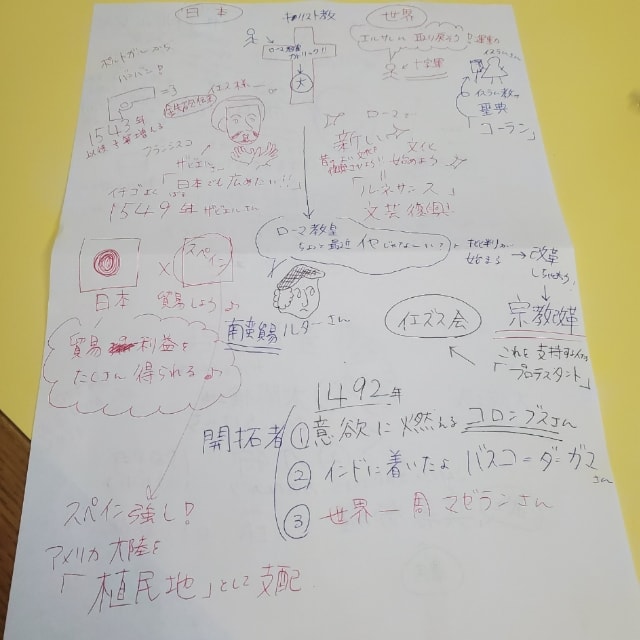 日本
キリスト教
世界
エルサレム取り戻そう!運動の
十字軍
ローマ教皇
カトリック!!
大
イスラム教の
聖典
「コーラン」
ポルトガルから
バンバン!
1543年
フランシスコ
ザビエル
イチゴよく「日本でも広めたい!!」
1549年 ザビエルさん
ローマで
新しい文化を
始めよう
「ルネサンス」
文芸復興!
ローマ教皇
ちょっと最近イヤじゃない?
批判が
始まる
→改革
宗教改革
これを支持する人が
「プロテスタント」
イエズス会
ルターさん
日本 × スペイン
貿易しよう♪
南蛮貿易
貿易 利益を
たくさん得られる♪
1492年
開拓者
①意欲に燃えるコロンブスさん
②インドに着いたよバスコ=ダ=ガマさん
③世界一周マゼランさん
スペイン強し!
アメリカ大陸を
「植民地」として支配